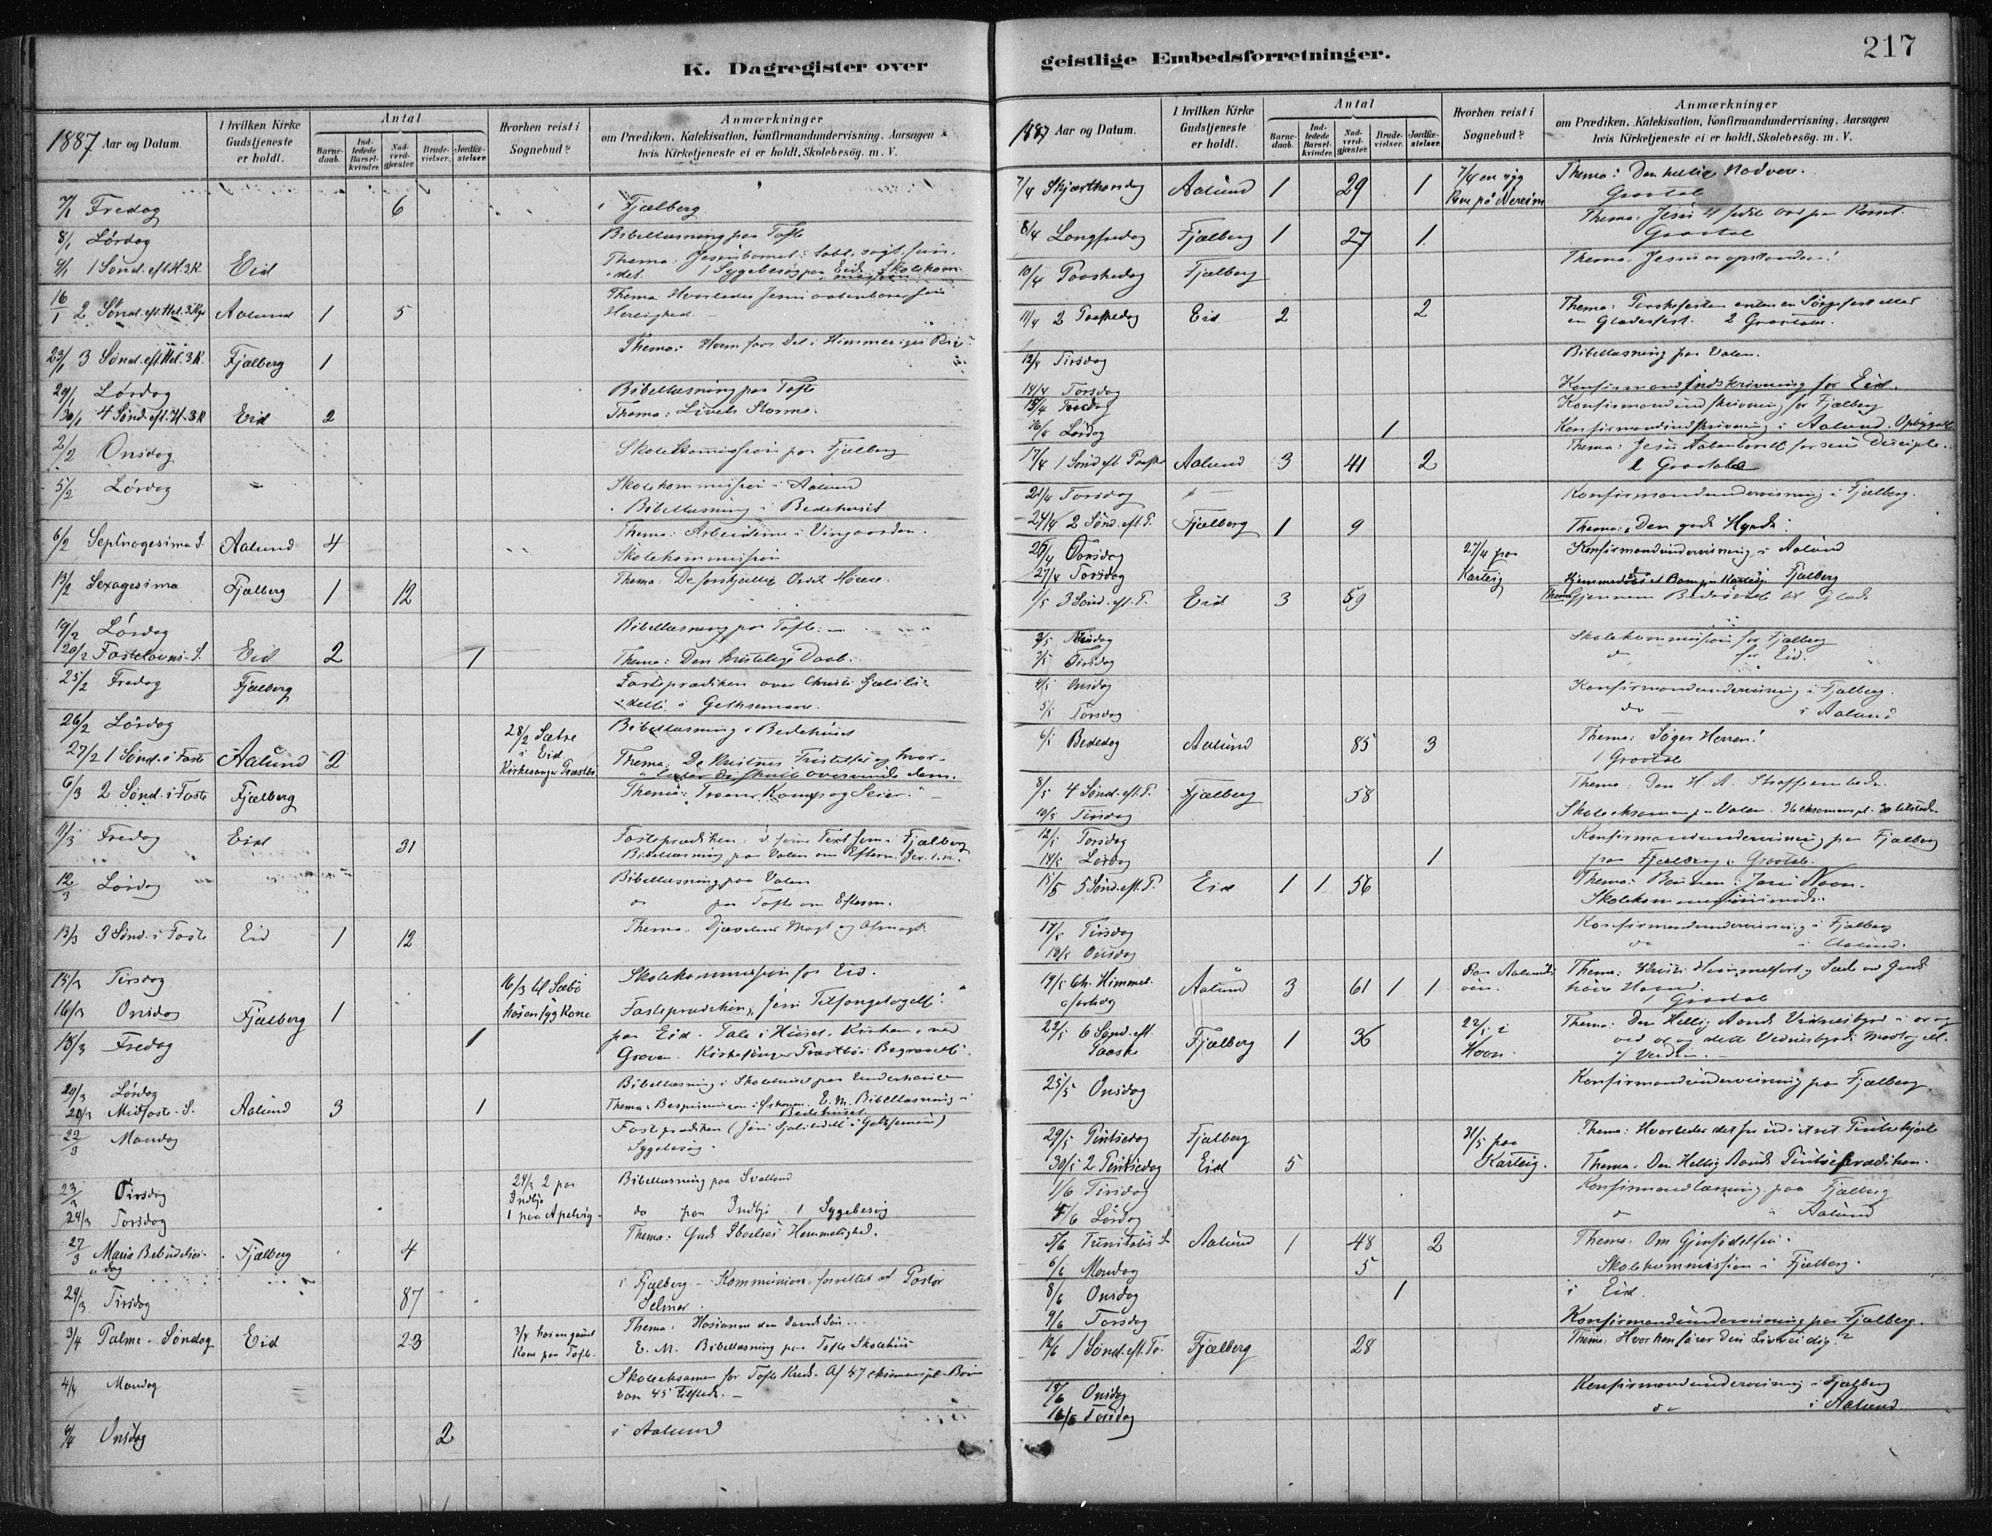 217
K. Dagregister over
1887 Aar og Datum.
I hvilken Kirke Gudstjeneste er holdt.
Antal
Barnedaab.
Indledede Barselkvinder.
Nadverdgjæster.
Brudevielser.
Jordfæstelser.
Hvorhen reist i Sognebud?
Anmærkninger
om Prædiken, Katekisation, Konfirmandundervisning, Aarsagen
hvis Kirketjeneste ei er holdt, Skolebesög, m. V.
7/1 Fredag 6 i Fjælberg
8/1 Lørdag Bibellæsning paa Tofte
9/1 1 Sönd. eft. H.3.K. Eid Thema: Jesusbarnet: tabt, søgt, fun-
det. 1 Sygebesøg paa Eid. Skolekom-
mission
16/1 2 Sönd. eft. Hel. 3 Kgr Aalund 1 5 Thema Hvorledes Jesus aabenbarer sin
Herlighed.
23/1 3 Sönd. eft. Hel. 3.K. Fjælberg 1 Thema: Hvem faar del i Himmeriges Rige
29/1 Lørdag Bibellæsning paa Tofte
30/1 4 Sönd. eft. H. 3.K Eid 2 Thema: Livets Storme.
2/2 Onsdag Skolekommission paa Fjælberg
5/2 Lørdag Skolekommission i Aalund
Bibellæsning i Bedehuset
6/2 Septuagesima S. Aalund 4 Thema: Arbeiderne i Vingaarden.
Skolekommission
13/2 Sexagesima Fjælberg 1 12 Thema: De forskjellige Ordets Hørere.
19/2 Lørdag Bibellæsning paa Tofte.
20/2 Fastelavns-S. Eid 2 1 Thema: Den kristelige Daab.
25/2 Fredag Fjælberg Fasteprædiken over Christi Sjælsli-
delse i Gethsemane.
26/2 Lørdag 28/2 Sætre i Eid Bibellæsning i Bedehuset
27/2 1 Sönd. i Faste Aalund 2 Kirkesanger Træstbö Thema: De Kristnes Fristelser og hvor-
ledes de skulle overvinde dem.
6/3 2 Sönd. i Faste Fjælberg Thema: Troens Kamp og Seier.
11/3 Fredag Eid 31 Fasteprædiken, samme Text som i Fjælberg
Bibellæsning paa Valen om Efterm.
12/3 Lørdag Bibellæsning paa Valen
do paa Tofte om Efterm.
13/3 3 Sönd. i Faste Eid 1 12 Thema: Djævelens Magt og Afmagt
15/3 Tirsdag 16/3 til Sæbö Skolekommission for Eid.
16/3 Onsdag Fjælberg 1 hos en syg Kone Fasteprædiken, Jesu Tilfangetagelse.
18/3 Fredag 1 paa Eid. Tale i Huset, Kirken, ved
Graven. Kirkesanger Træstbös Begravelse.
20/3 Lørdag Bibellæsning i Skolehuset paa
20/3 Midfaste-S. Aalund 3 1 Thema: Bespisningen i Ørkenen. E.M. Bibellæsning i
Bedehuset
22/3 Mandag Fasteprædiken (Jesu Sjælelidelse i Getsemane)
Sygebesøg.
23/3 Tirsdag 24/3 2 paa Indbjo Bibellæsning paa
24/3 Torsdag 1 paa Apelvig do paa Indbjo 1 Sygebesøg
27/3 Maria Bebudelses-
dag Fjælberg 4 Thema: Guds Hemmelighed.
29/3 Tirsdag 87 i Fjælberg – Kommunion, forrettet af Pastor
Selmer.
3/4 Palme-Søndag Eid 23 3/4 hos en gammel Kone paa Tofte. Thema: Hosianna den Davids Søn
E. M. Bibellæsning paa Tofte Skolehus
4/4 Mandag Skoleexamen for Tofte Kreds. Af 47 eksamenspl. Börn
var 45 tilstede.
6/4 Onsdag 2 i Aalund
geistlige Embedsforretninger.
1887 Aar og Datum.
I hvilken Kirke Gudstjeneste er holdt.
Antal
Barnedaab.
Indledede Barselkvinder.
Nadverdgjæster.
Brudevielser.
Jordfæstelser.
Hvorhen reist i Sognebud?
Anmærkninger
om Prædiken, Katekisation, Konfirmandundervisning, Aarsagen
hvis Kirketjeneste ei er holdt, Skolebesög, m. V.
7/4 Skjærthorsdag Aalund 1 29 1 7/4 en syg Kone på Nereim Thema: Den hellige Nadvere.
Gravtale
8/4 Langfredag Fjælberg 1 27 1 Thema: Jesu 4 sidste Ord paa Korset.
Gravtale
10/4 Paaskedag Fjælberg Thema: Jesus er opstanden!
11/4 2 Paaskedag Eid 2 2 Thema: Paaskefesten enten en Sørgefest eller
en Gladesfest. 2 Gravtaler.
12/4 Tirsdag Bibellæsning paa Valen.
14/4 Torsdag Konfirmandindskrivning for Eid.
15/4 Fredag Konfirmandindskrivning for Fjælberg
16/4 Lørdag 1 Konfirmandindskrivning i Aalund.
17/4 1 Sönd. eft. Paaske Aalund 3 41 2 Thema: Jesu Aabenbarelse for sine Disciple.
2 Gravtale
21/4 Torsdag Konfirmandundervisning i Fjælberg.
24/4 2 Sönd. eft. P. Fjælberg 1 9 Thema: Den gode Hyrde.
26/4 Tirsdag 27/4 paa Kartvig Konfirmandundervisning i Aalund
27/4 Torsdag Hjemmedøbt et Barn paa Kartvig. Fjælberg
1/5 3 Sönd. eft. P. Eid 3 59 Thema: Gjennem Bedrøvelse til Glæde
2/5 Mandag Skolekommission for Fjælberg
3/5 Tirsdag do for Eid.
4/5 Onsdag Konfirmandundervisning i Fjælberg.
5/5 Torsdag do i Aalund
6/5 Bededag Aalund 85 3 Thema: Søger Herren!
1 Gravtale
8/5 4 Sönd. eft. P. Fjælberg 58 Thema: Den H. A. Straffeembede.
10/5 Tirsdag Skoleeksamen paa Valen. 36 eksamenspl. 30 tilstede.
12/5 Torsdag Konfirmandundervisning paa Fjælberg
14/5 Lørdag 1 paa Fjælberg, Gravtale.
15/5 5 Sönd. eft. P. Eid 1 1 56 Thema: Bönnen i Jesu Navn.
Skolekommissionsmøde.
17/5 Tirsdag Konfirmandundervisning i Fjælberg
18/5 Onsdag do i Aalund.
19/5 Ch. Himmel-
fartsdag Aalund 3 61 1 1 Thema: Kristi Himmelfart og Sæde ved Guds
høire Haand.
1 Gravtale
22/5 6 Sønd. eft. Paaske Fjælberg 1 36 22/5 i Havn. Thema: Den Hellig Aands Vidnesbyrd i os og
ved os og dette Vidnesbyrds Modtagelse
af Verden.
25/5 Onsdag Konfirmandundervisning paa Fjælberg
29/5 Pintsedag Fjælberg 31/5 paa Kartvig. Thema: Hvorledes det ser ud i et ret Pintsehjerte
30/5 2 Pintsedag Eid 5 Thema: Den Hellig Aands Pintseprædiken.
1/6 Tirsdag Konfirmandlæsning paa Fjælberg
4/6 Lørdag do i Aalund
5/6 Trinitatis S. Aalund 1 48 2 Thema: Om Gjenfødelsen.
6/6 Mandag 5 Skolekommission i Fjælberg.
8/6 Onsdag 1 i Eid.
9/6 Torsdag Konfirmandundervisning paa Fjælberg.
12/6 1 Sönd. eft. Tr. Fjælberg 28 Thema: Hvorhen fører din Livsvei dig?
15/6 Onsdag Konfirmandundervisning i Fjælberg
16/6 Torsdag do i Aalund